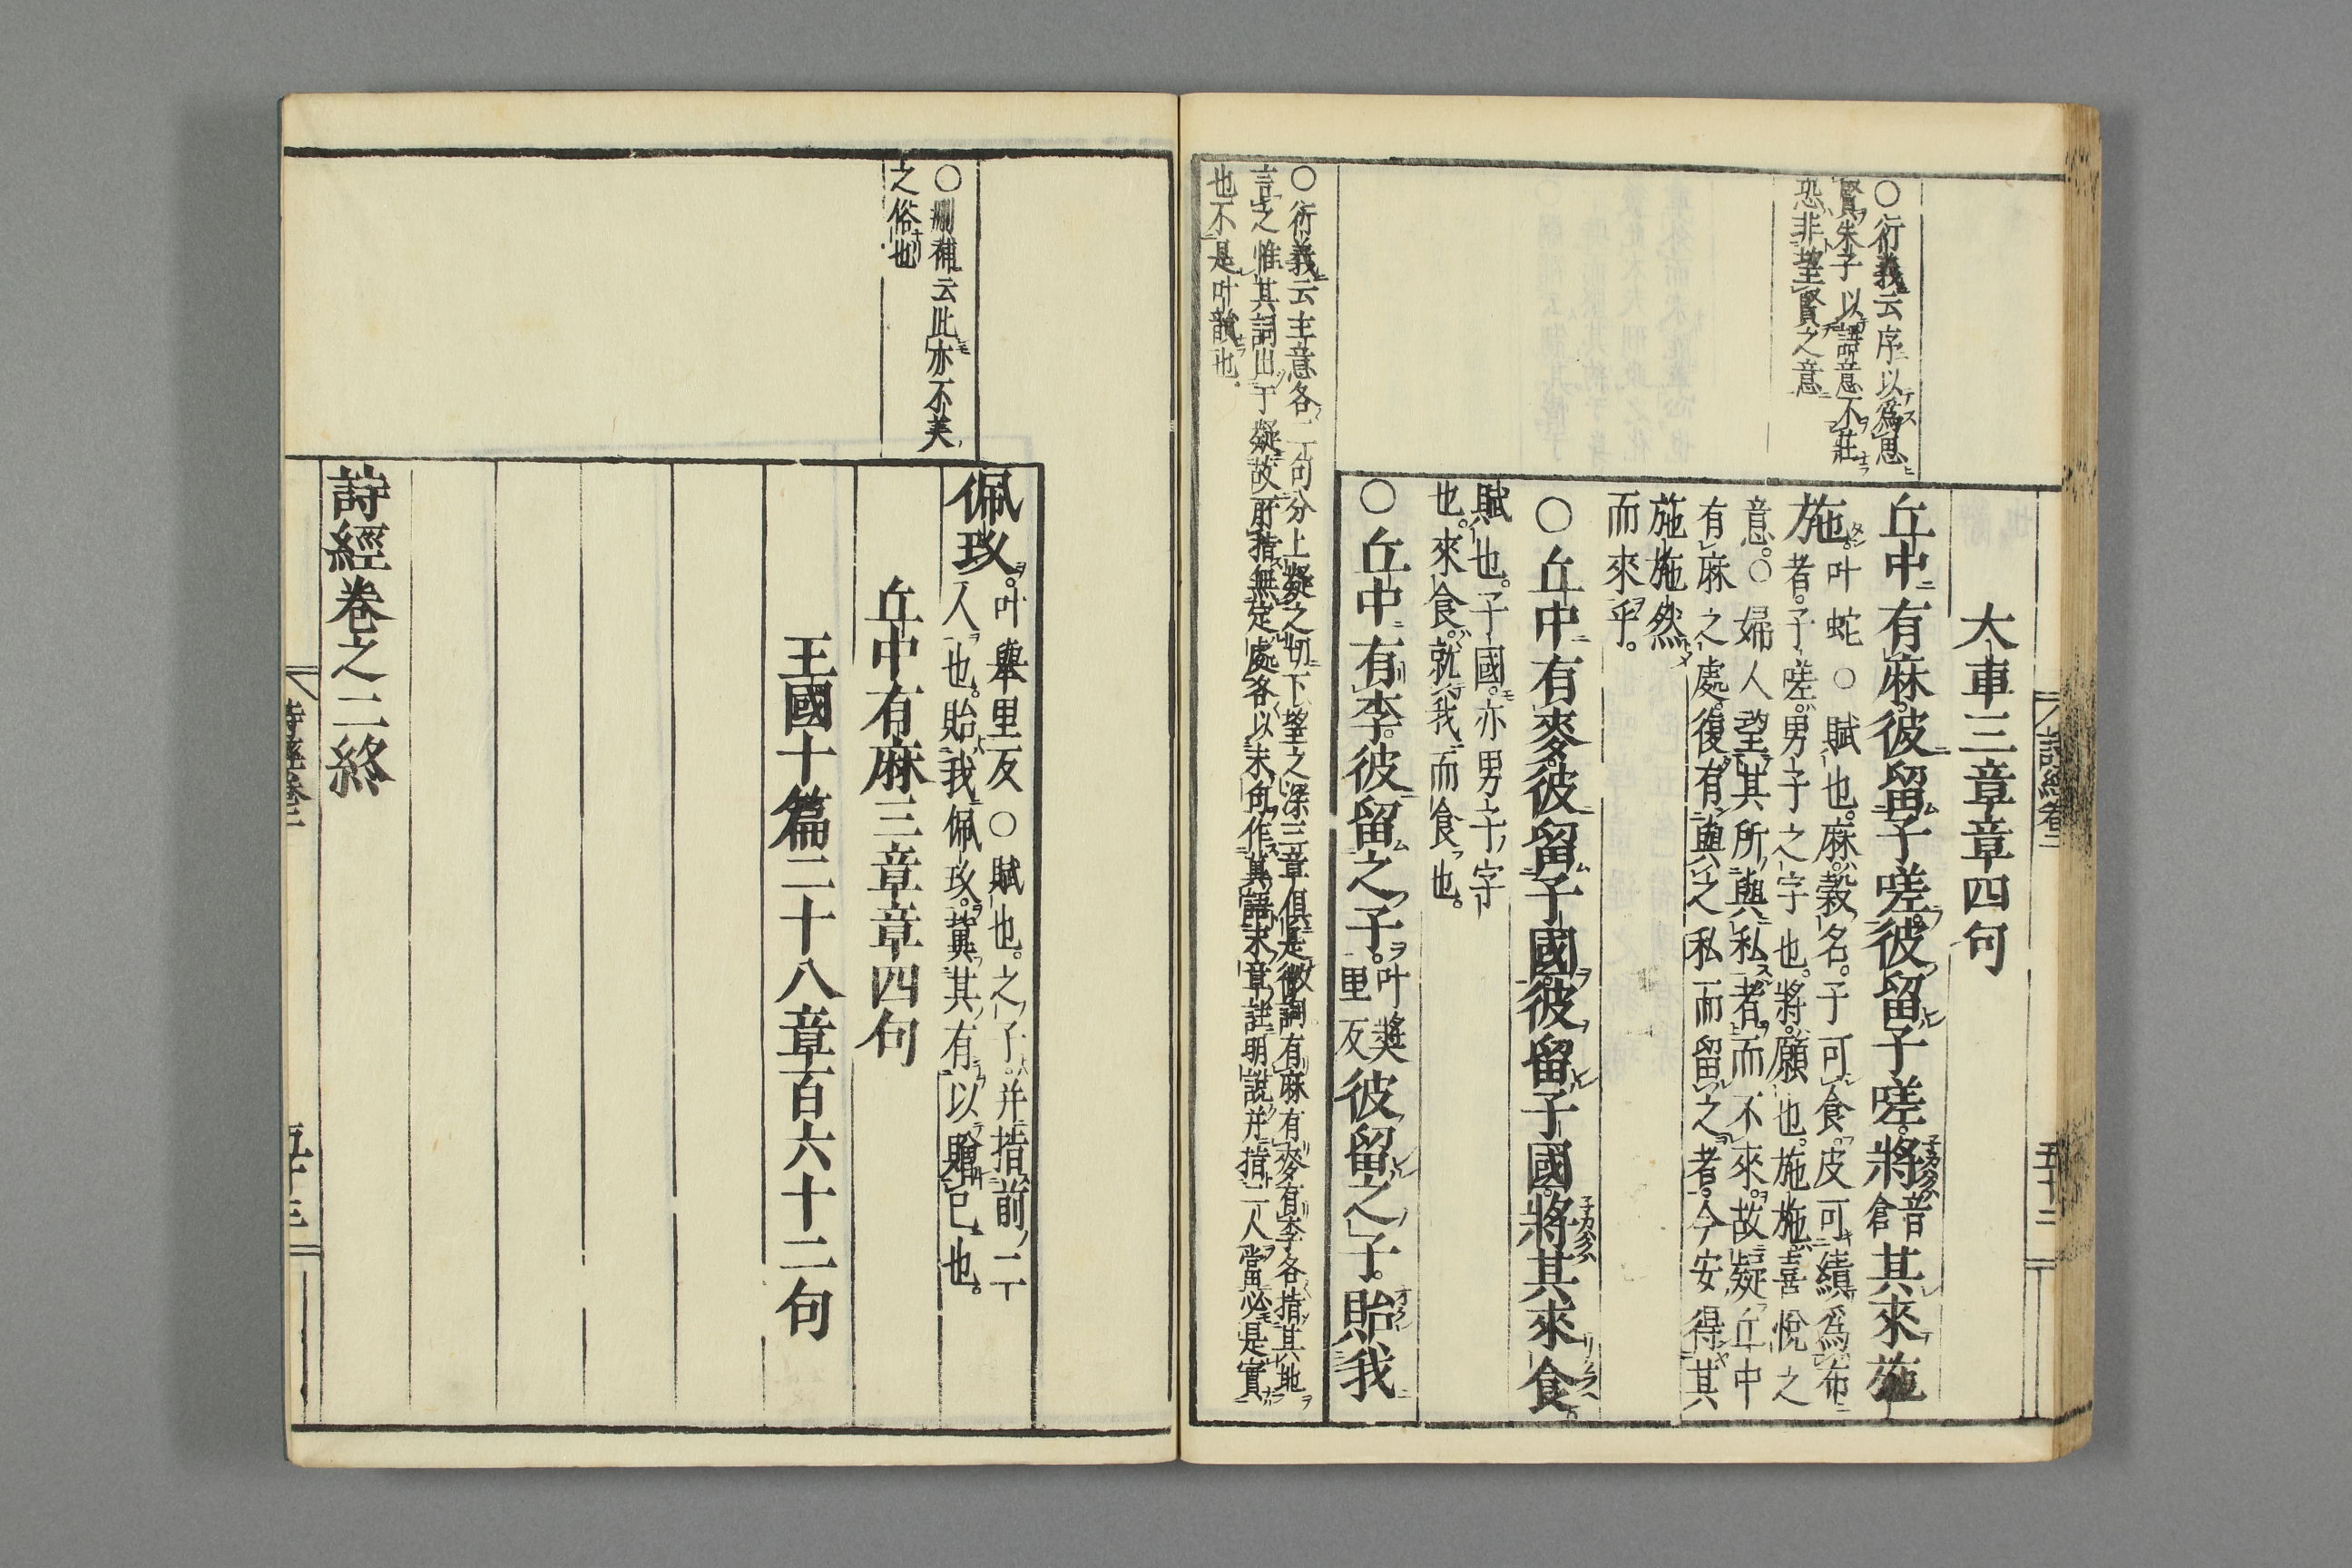 ○衍義云序以為思
賢朱子以語意不莊
恐非望賢之意
大車三章章四句
丘中有麻彼留子嗟彼留子嗟將音倉其來施
施叶蛇○賦也。麻。穀名。子可食。皮可績爲布
者。子嗟。男子之字也。將。願也。施施。喜悅之
意。○婦人望其所與私者。而不來。故疑丘中
有麻之處。復有與之私而留之者。今安得其
施施然
而來乎。
○丘中有麥彼留子國彼留子國將其來食
賦也。子國。亦男子字
也。來食。就我而食也。
○丘中有李彼留之子。叶獎里反彼留之子。貽我
○衍義云主意各二句分上疑之切下望之深三章俱是微詞有麻有麥有李各指其地
言之惟其詞出于疑故所指無定處各以末句作冀語末章註明說并指二人當必是實
也不是叶韻也
詩經卷二
五十二
○刪補云此亦不美
之俗也
佩玖。叶舉里反○賦也。之子。并指前二
人也。貽我佩玖。冀其有以贈己也。
丘中有麻三章章四句
王國十篇二十八章百六十二句
詩經卷之二終
詩經卷二
五十三